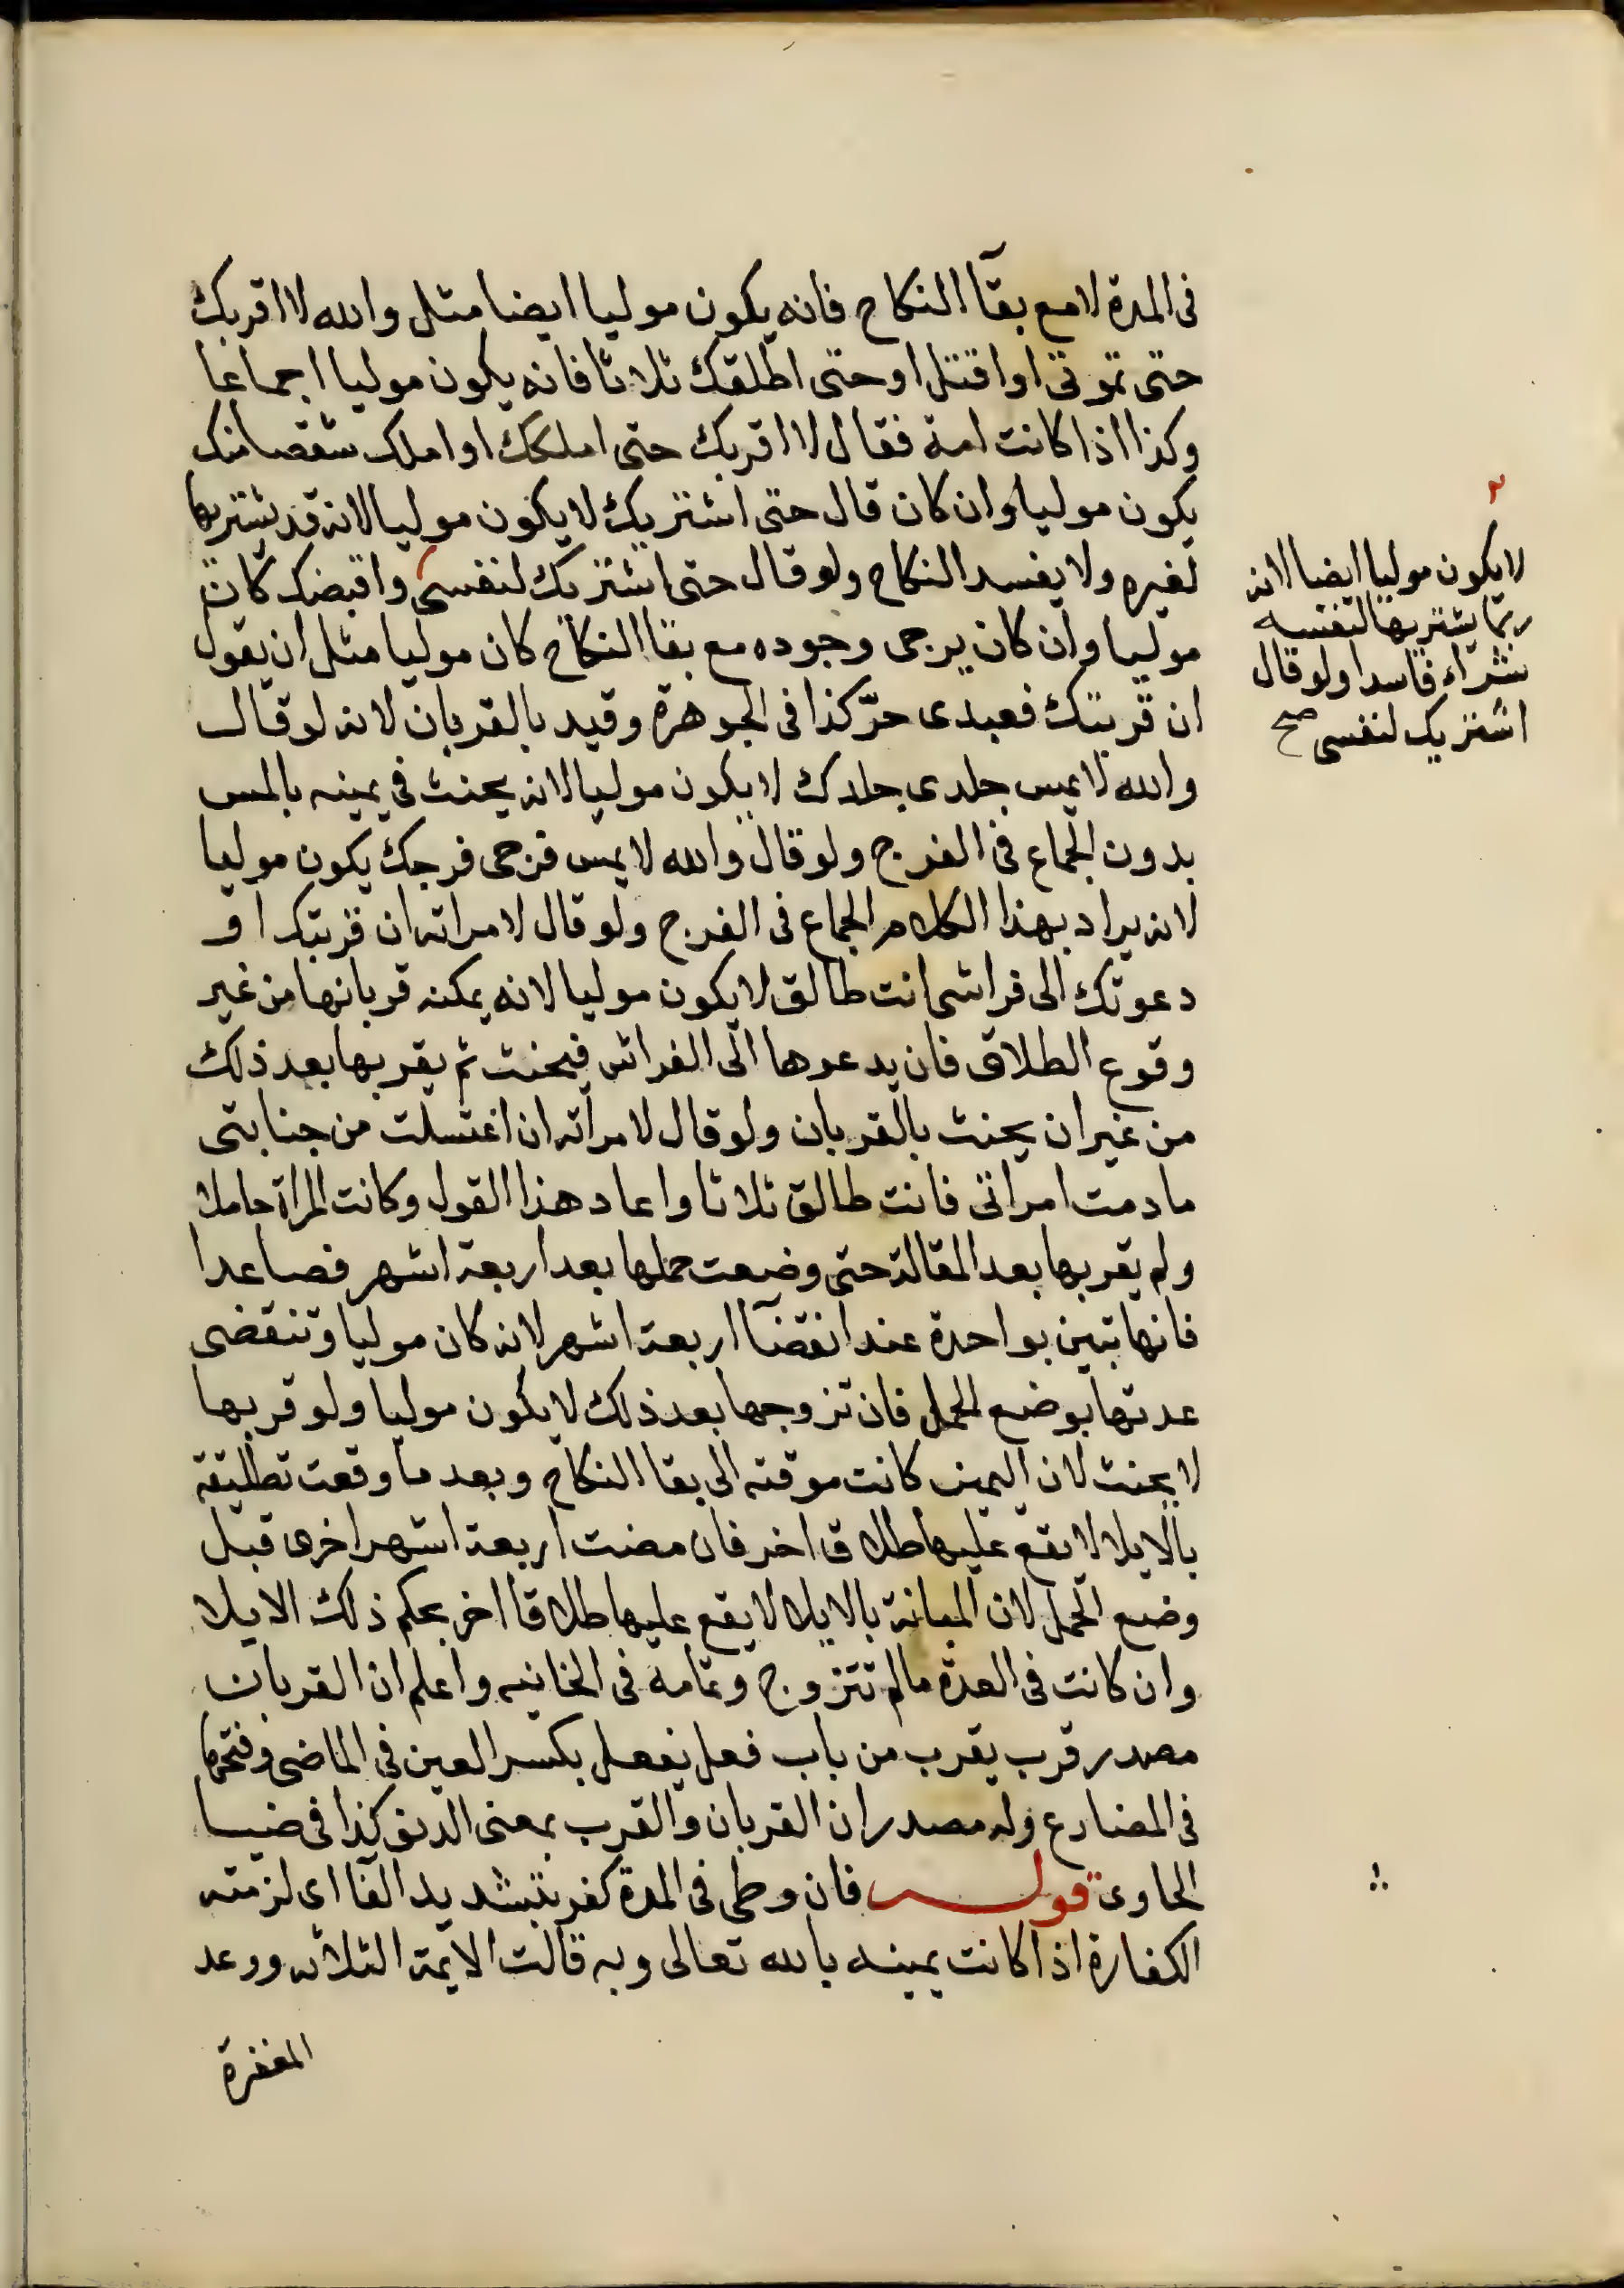 فى المدة لا مع بقآ النكاح فانه يكون موليا ايضا مثل والله لا اقربك
حتى تموتى او اقتل او حتى اطلقك ثلاثا فانه يكون موليا اجماعا
وكذا اذا كانت امة فقال لا اقربك حتى املكك او املك شقصا منك
يكون موليا وان كان قال حتى اشتريك لا يكون موليا لانه قد يشتريها
لغيره ولا يفسد النكاح ولو قال حتى اشتريك لنفسى واقبضك كان
موليا وان كان يرجى وجوده مع بقا النكاح كان موليا مثل ان يقول
ان قربتك فعبدى حرّ كذا فى الجوهرة وقيد بالقربان لانه لو قال
والله لا يمس جلدى جلدك لا يكون موليا لانه يحنث فى يمينه بالمس
بدون الجماع فى الفرج ولو قال والله لا يمس فرجى فرجك يكون موليا
لانه يراد بهذا الكلام الجماع فى الفرج ولو قال لامراته ان قربتك او
دعوتك الى فراشى انت طالق لا يكون موليا لانه يمكنه قربانها من غير
وقوع الطلاق فان يدعوها الى الفراش فيحنث ثم يقربها بعد ذلك
من غير ان يحنث بالقربان ولو قال لامراته ان اغتسلت من جنابتى
ما دمت امراتى فانت طالق ثلاثا واعاد هذا القول وكانت المراة حاملا
ولم يقربها بعد المقالة حتى وضعت حملها بعد اربعة اشهر فصاعدا
فانها تبين بواحدة عند انقضآ اربعة اشهر لانه كان موليا وتنقضى
عدتها بوضع الحمل فان تزوجها بعد ذلك لا يكون موليا ولو قربها
لا يحنث لان اليمين كانت موقتة الى بقا النكاح وبعد ما وقعت تطليقة
بالايلا لا يقع عليها طلاق اخر فان مضت اربعة اشهر اخرى قبل
وضع الحمل لان المبانة بالايلا لا يقع عليها طلاقا اخر بحكم ذلك الايلا
وان كانت فى العدة ما لم تتزوج وتمامه فى الخانيه واعلم ان القربان
مصدر قرب يقرب من باب فعل يفعل بكسر العين فى الماضى وفتحها
فى المضارع وله مصدران القربان والقرب بمعنى الدنو كذا فى ضيا
الحاوى قوله فان وطى فى المدة كفر بتشديد الفا اى لزمته
الكفارة اذا كانت يمينه بالله تعالى وبه قالت الايمة الثلاثه ووعد
المغفرة
٢
لا يكون موليا ايضا لانه
ربما يشتريها لنفسه
شراء فاسدا ولو قال
اشتريك لنفسى صح